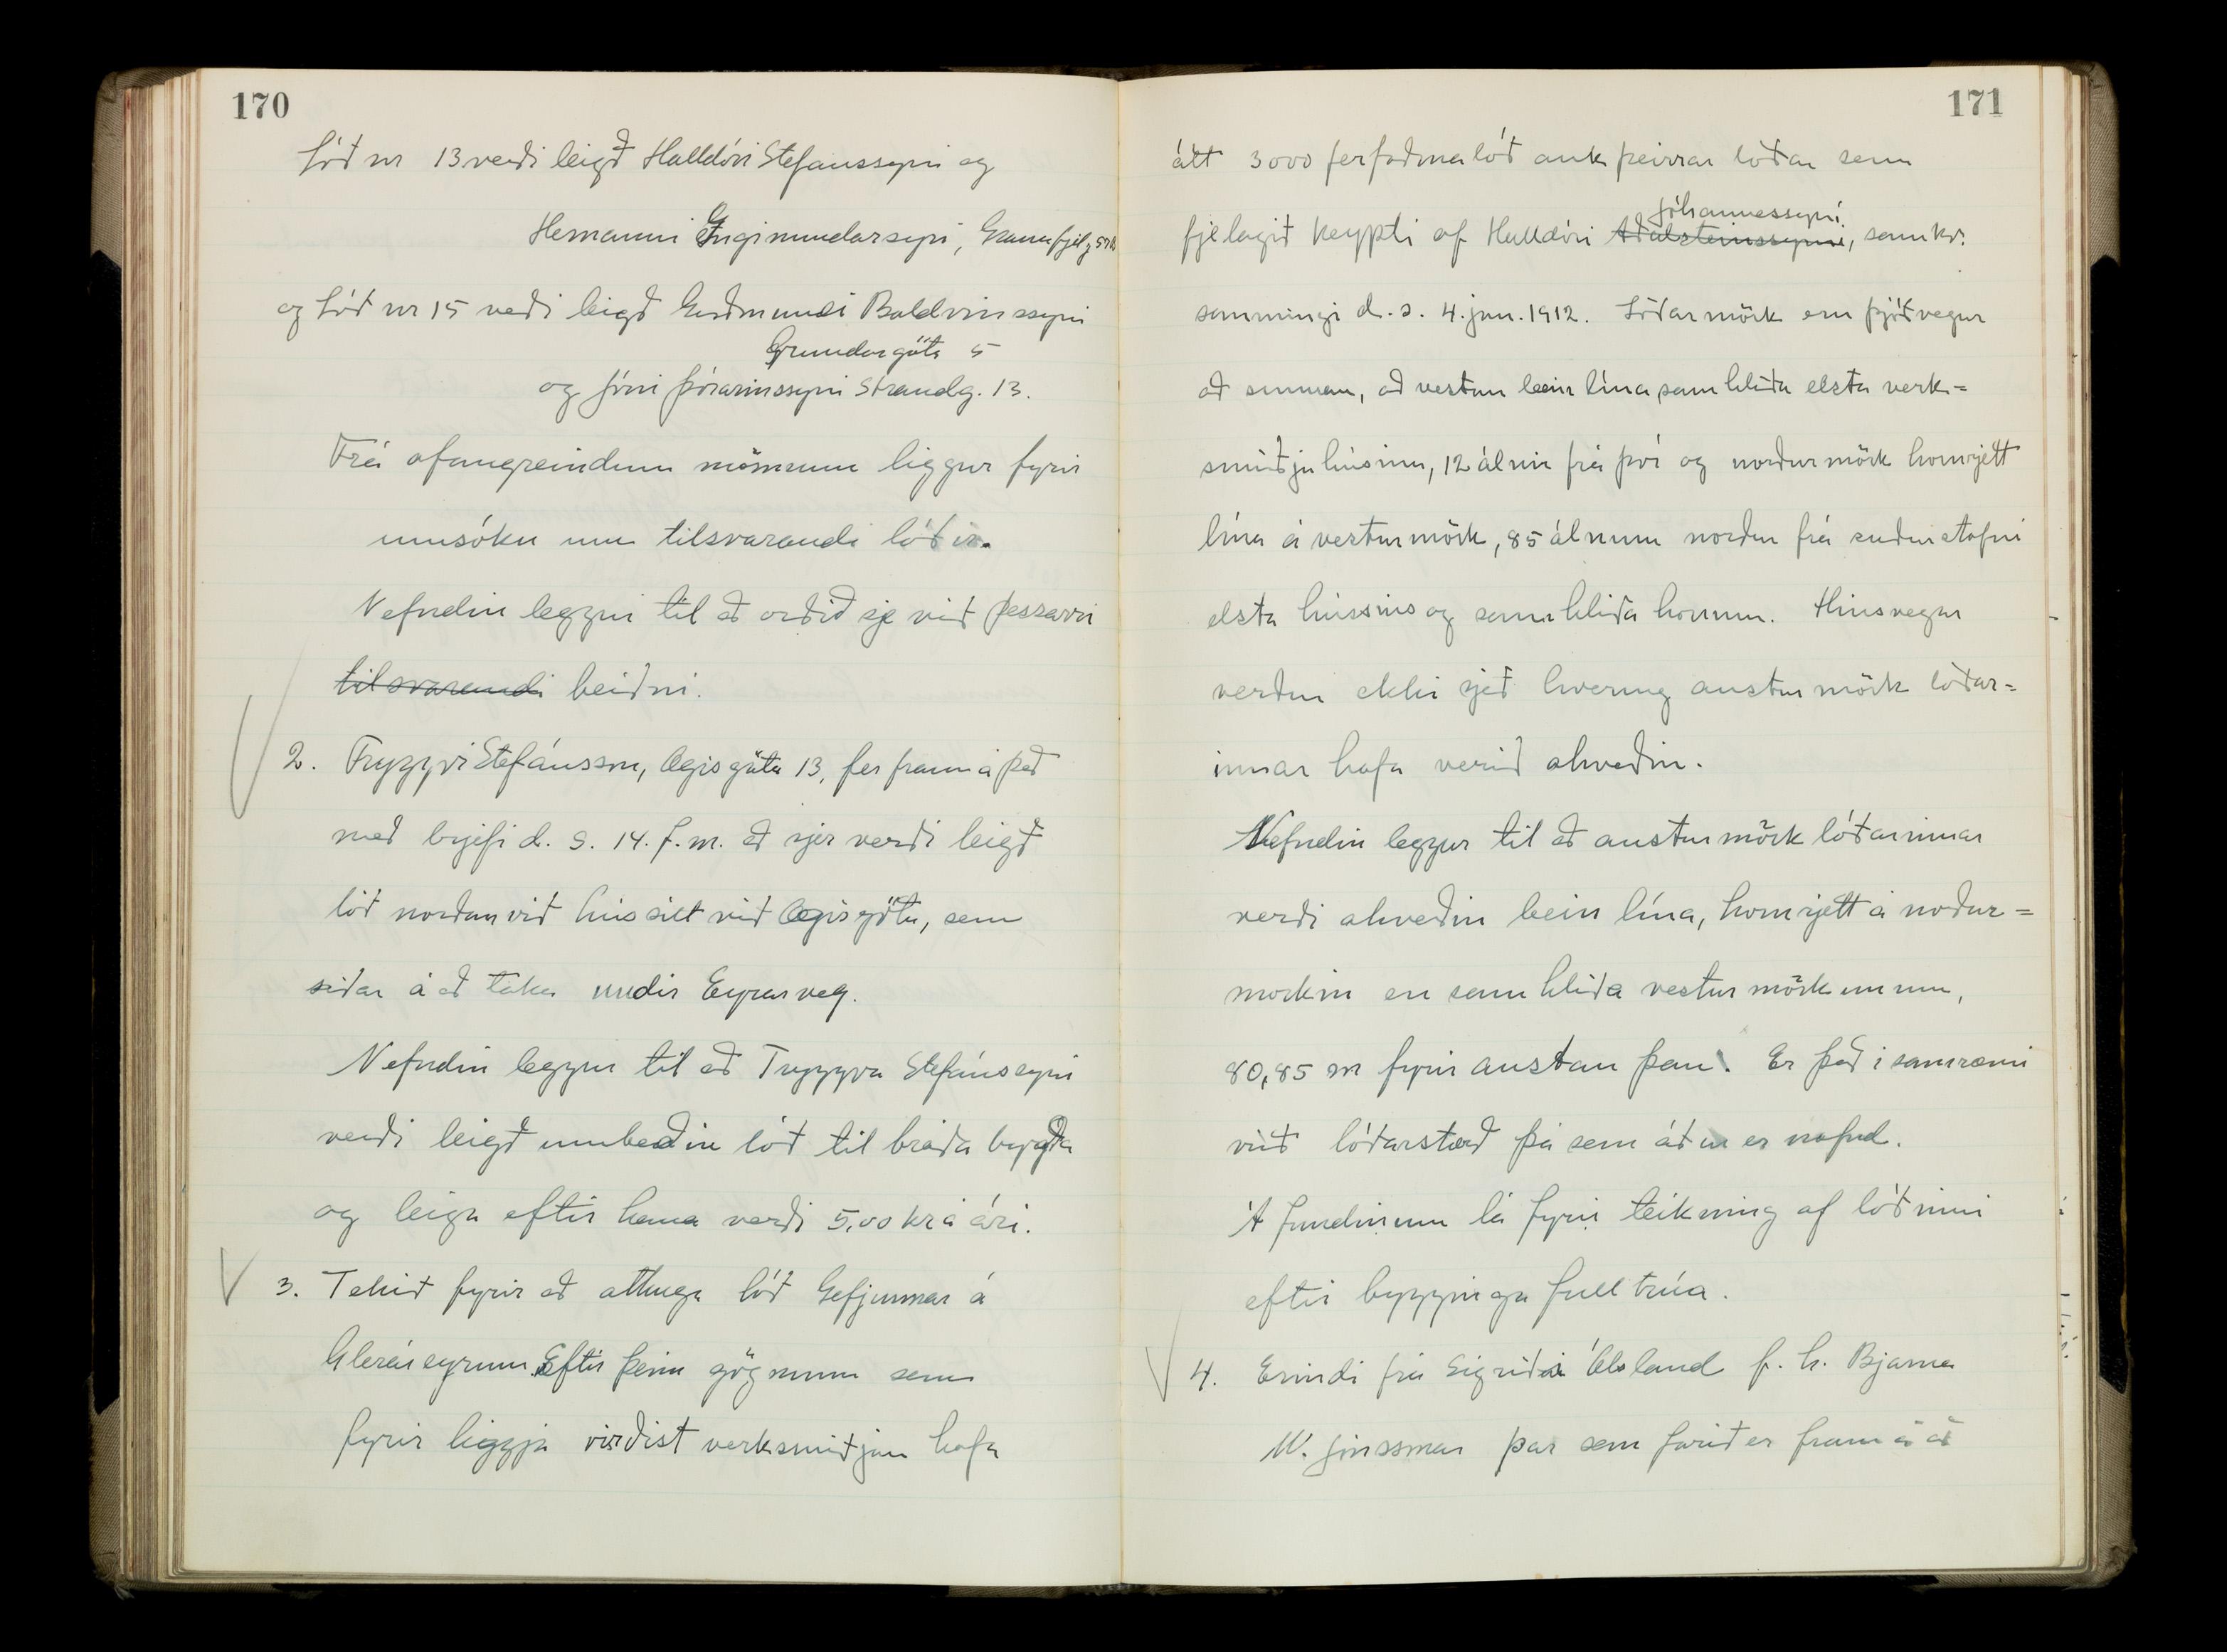 170
Lóð nr 13 verði leigð Halldóri Stefánssyni og
Hermanni Ingimundarsyni,
og Lóð nr 15 veði leigð Guðmundi Baldvinssyni
Grundargötu 5
og Jóni Þórarinssyni Strandg. 13.
Frá ofangreindum mönnum liggur fyrir
umsókn um tilsvarandi lóðir.
Nefndin leggur til að orðið sje við þessarri
tilsvarandi beiðni.
2. Tryggvi Stefánsson, Ægisgötu 13, fer fram á það
með brjefi d. s. 14. f. m. að sjer verði leigð
lóð norðan við hús sitt við Ægisgötu, sem
síðar á að taka undir Eyrarveg.
Nefndin leggur til að Tryggva Stefánssyni
verði leigð umbeðin lóð til bráðabyrgða
og leiga eftir hana verði 5,00 kr á ári.
3. Tekið fyrir að athuga lóð Gefjunnar á
Gleráreyrum. Eftir þeim gögnum sem
fyrir liggja virðist verksmiðjan hafa
171
átt 3000 ferfaðma lóð auk þeirrar lóðar sem
Jóhannessyni
fjelagið keypti af Halldóri Aðalsteinssyni, samkv.
samningi d. s. 4. jan. 1912. Lóðarmörk eru þjóðvegur
að sunnan, að vestan bein lína samhliða elsta verk=
smiðjuhúsinu, 12 álnir frá því og norðurmörk hornrjett
lína á vesturmörk, 85 álnum norður frá suðurstafni
elsta hússins og samhliða honum. Hinsvegar
verður ekki sjeð hvernig austurmörk lóðar=
innar hafa verið ákveðin.
Nefndin leggur til að austurmörk lóðarinnar
verði ákveðin bein lína, hornrjett á norður=
mörkin en samhliða vesturmörkunum,
80,85 m fyrir austan þau. Er það í samræmi
við lóðarstærð þá sem áður er nefnd.
Á fundinum lá fyrir teikning af lóðinni
eftir byggingafulltrúa.
4. Erindi frá Sigríði Ólsland f. h. Bjarna
M. Jónssonar þar sem farið er fram á að